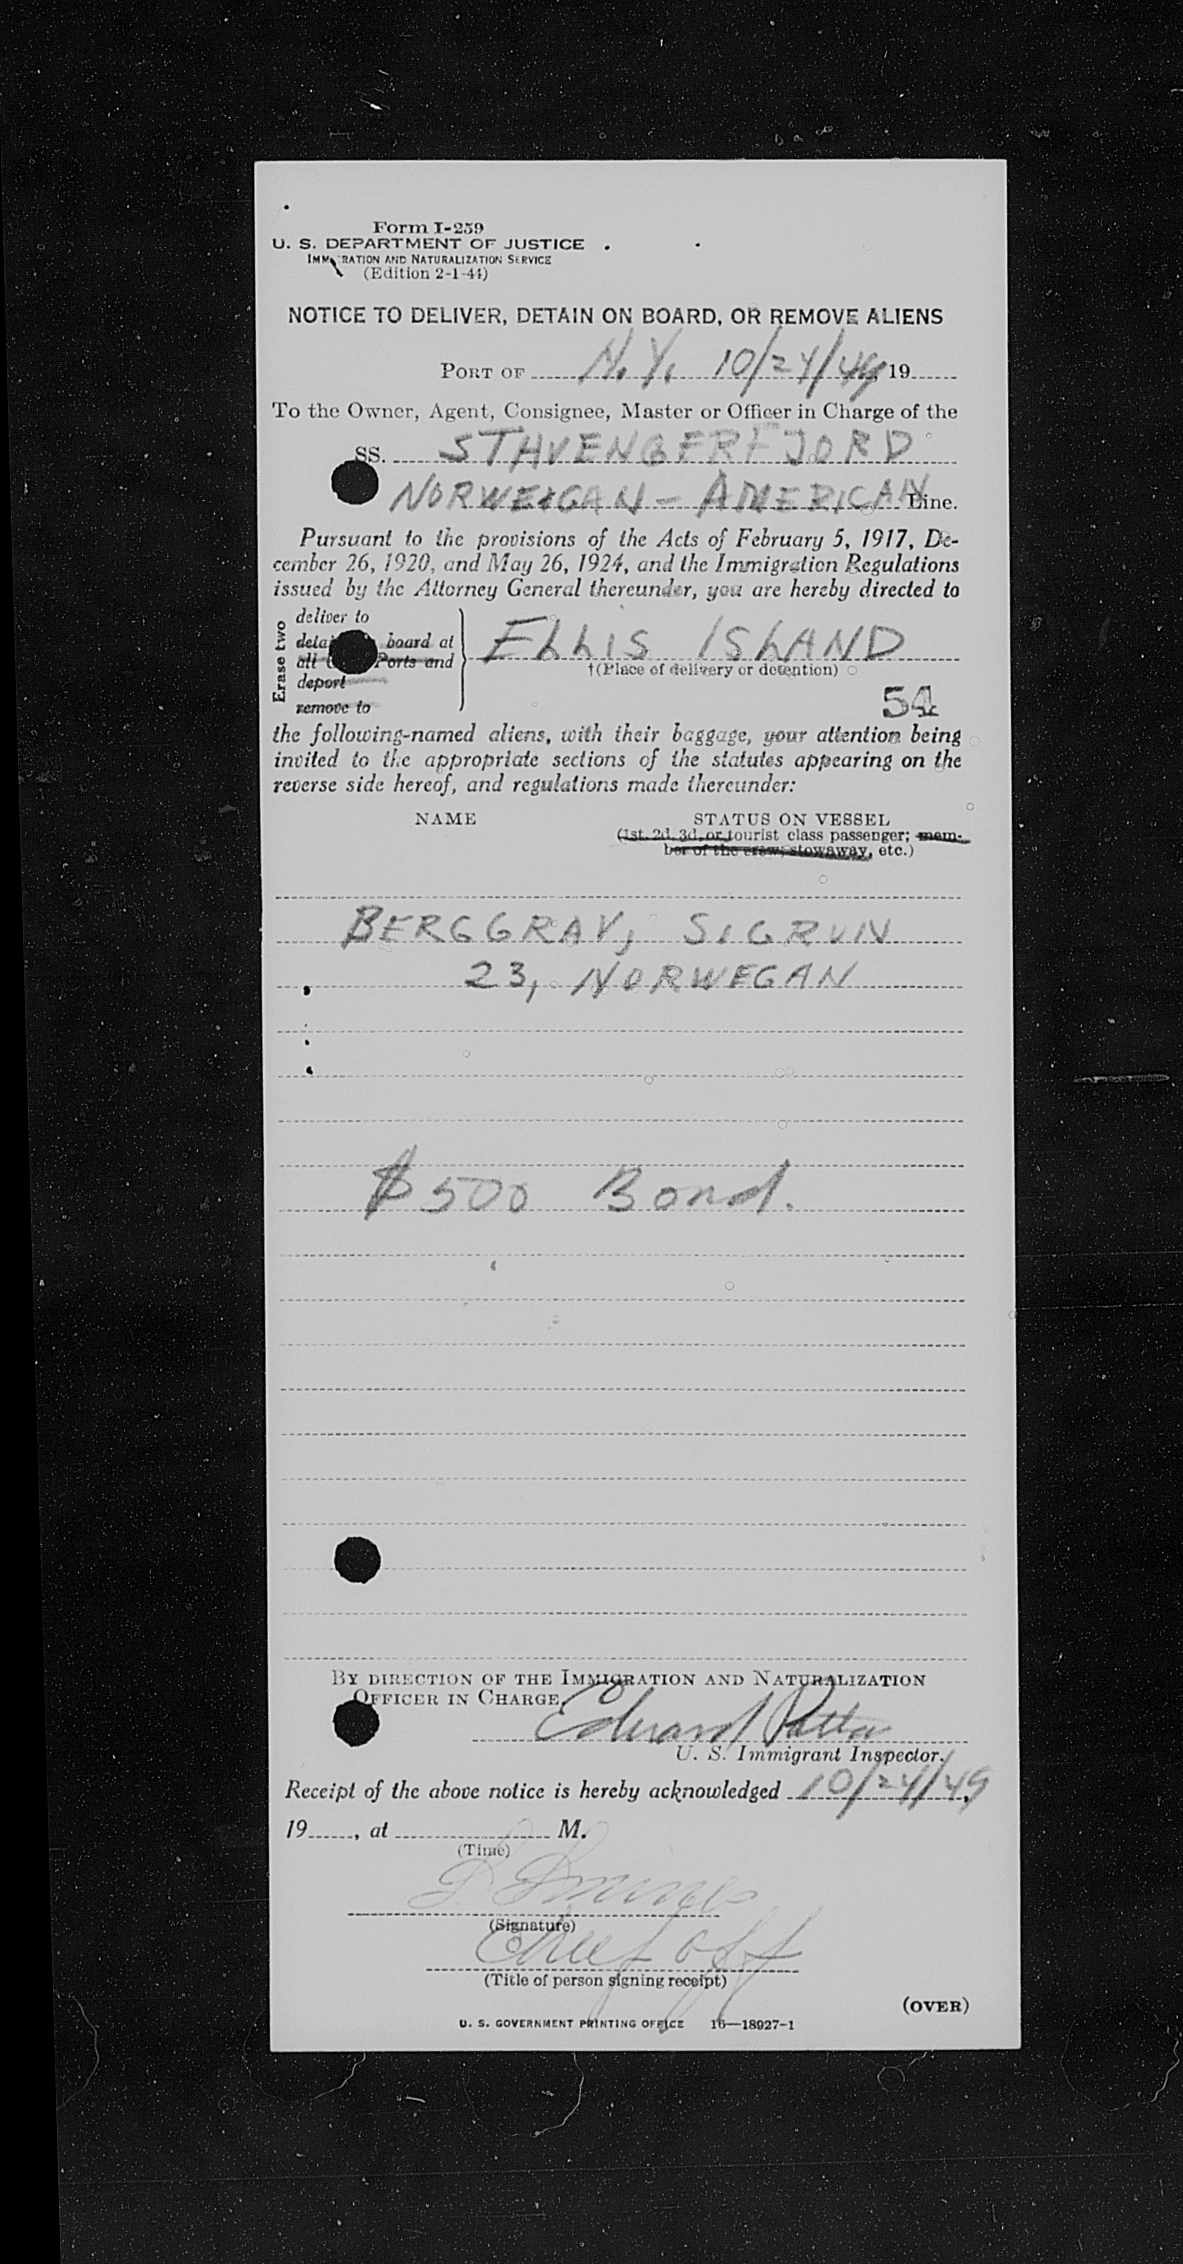 Form I-259
U. S. DEPARTMENT OF JUSTICE
IMMIGRATION AND NATURALIZATION SERVICE
(Edition 2-1-44)
NOTICE TO DELIVER, DETAIN ON BOARD, OR REMOVE ALIENS
PORT OF N.Y. 10/24/49 19
To the Owner, Agent, Consignee, Master or Officer in Charge of the
SS. STAVENGERFJORD
NORWEIGAN - AMERICAN Line.
Pursuant to the provisions of the Acts of February 5, 1917, De-
cember 26, 1920, and May 26, 1924, and the Immigration Regulations
issued by the Attorney General thereunder, you are hereby directed to
Erase two
deliver to
board at
all Ports and
deport
remove to
ELLIS ISLAND
†(Place of delivery or detention)
54
the following-named aliens, with their baggage, your attention being
invited to the appropriate sections of the statutes appearing on the
reverse side hereof, and regulations made thereunder:
NAME STATUS ON VESSEL
(1st, 2d, 3d, or tourist class passenger; mem-
ber of the crew; stowaway, etc.)
BERGGRAV, SIGRUN
23, NORWEGAN
$500 Bond.
BY DIRECTION OF THE IMMIGRATION AND NATURALIZATION
OFFICER IN CHARGE.
Edward
U. S. Immigrant Inspector.
Receipt of the above notice is hereby acknowledged 10/24/49,
19, at M.
(Time)
(Signature)
Chief Off
(Title of person signing receipt)
(OVER)
U. S. GOVERNMENT PRINTING OFFICE 16—18927-1